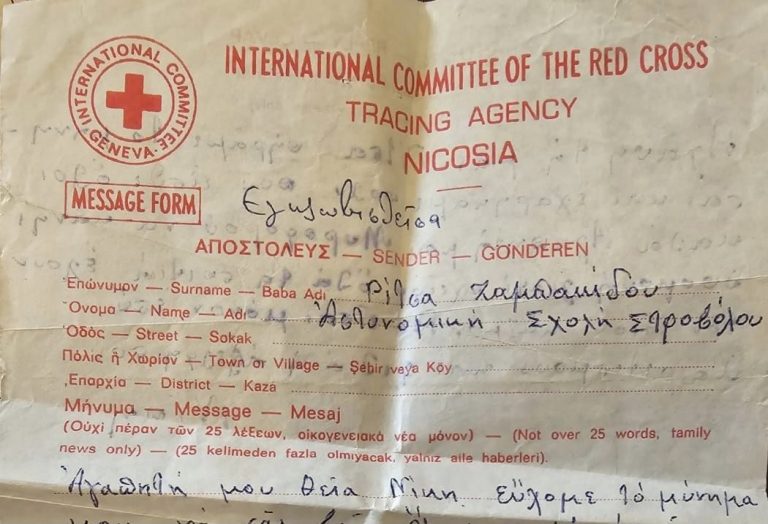 INTERNATIONAL COMMITTEE
GENEVA
INTERNATIONAL COMMITTEE OF THE RED CROSS
TRACING AGENCY
NICOSIA
MESSAGE FORM
Εγκλωβισθεῖσα
ΑΠΟΣΤΟΛΕΥΣ — SENDER — GÖNDEREN
Ἐπώνυμον — Surname — Baba Adı Ρίτσα
Ὄνομα — Name — Adı Ἀστυνομική Σχολή Στροβόλου
Ὁδός — Street — Sokak
Πόλις ἤ Χωρίον — Town or Village — Şehir veya Köy
Ἐπαρχία — District — Kaza
Μήνυμα — Message — Mesaj
(Οὐχί πέραν τῶν 25 λέξεων, οἰκογενειακά νέα μόνον) — (Not over 25 words, family
news only) — (25 kelimeden fazla olmıyacak, yalnız aile haberleri).
Ἀγαπητή μου θεία Νίκη. Εὔχομε τό μύνημα